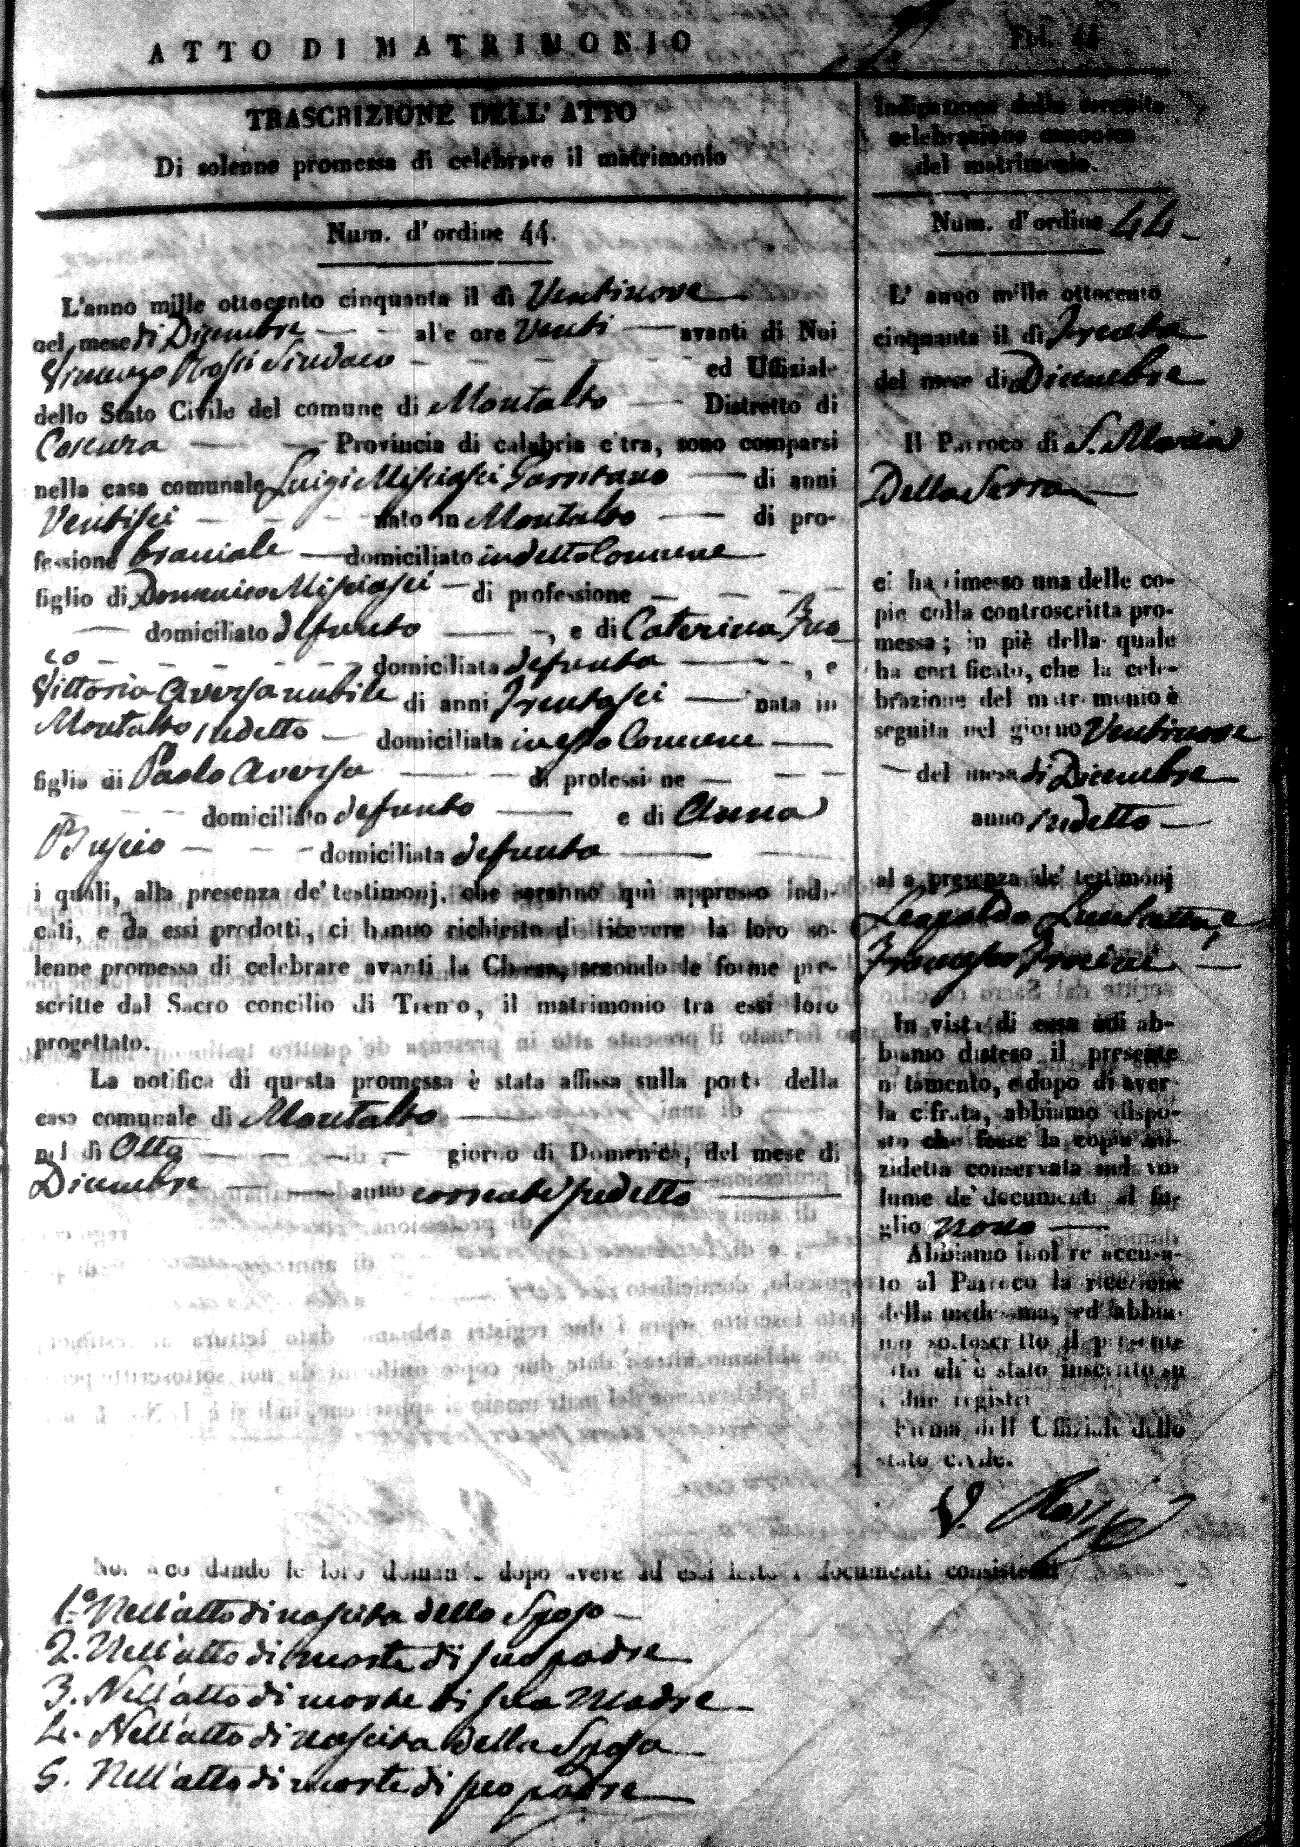 ATTO DI MATRIMONIO
TRASCRIZIONE DELL' ATTO
Di solenne promessa di celebrare il matrimonio
Num. d'ordine 44.
L'anno mille ottocento cinquanta il dì Ventinove
nel mese di Dicembre alle ore Venti avanti di Noi
Vincenzo Rossi Sindaco ed Uffiziale
dello Stato Civile del comune di Montalto Distretto di
Cosenza Provincia di calabria citra, sono comparsi
nella casa comunale Luigi Misciasci di anni
Ventisei nato in Montalto di pro-
fessione braciale domiciliato in detto Comune
figlio di Domenico Misciasci di professione
domiciliato defunto, e di Caterina
domiciliata defunta, e
Vittoria Aversa nubile di anni Trentasei nata in
Montalto sudetto domiciliata in esso Comune
figlia di Paolo Aversa di professione
domiciliato defunto e di Anna
domiciliata defunta
i quali, alla presenza de' testimonj, che saranno quì appresso indi-
cati, e da essi prodotti, ci hanno richiesto di ricevere la loro so-
lenne promessa di celebrare avanti la Chiesa, secondo le forme pre-
scritte dal Sacro concilio di Trento, il matrimonio tra essi loro
progettato.
La notifica di questa promessa è stata affissa sulla porta della
casa comunale di Montalto
nel dì Otto giorno di Domenica, del mese di
Dicembre anno corrente sudetto
Noi secondando le loro domande dopo avere ad essi letto i documenti consistenti
1.° Nell'atto di nascita dello Sposo
2. Nell'atto di morte di suo padre
3. Nell'atto di morte di sua Madre
4. Nell'atto di nascita della Sposa
5. Nell'atto di morte di suo padre
Indicazione della seguita
celebrazione canonica
del matrimonio.
Num. d'ordine 44
L' anno mille ottocento
cinquanta il dì Trenta
del mese di Dicembre
Il Parroco di S. Maria
Della Serra
ci ha rimesso una delle co-
pie colla controscritta pro-
messa; in piè della quale
ha certificato, che la cele-
brazione del matrimonio è
seguita nel giorno Ventinove
del mese di Dicembre
anno sudetto
alla presenza de' testimonj
Leopoldo
Francesco
In vista di essa noi ab-
biamo disteso il presente
notamento, e dopo di aver-
la cifrata, abbiamo dispo-
sto che fosse la copia an-
zidetta conservata nel vo-
lume de' documenti al fo-
glio nono
Abbiamo inoltre accusa-
to al Parroco la ricezione
della medesima, ed abbia-
mo sottoscritto il presente
atto che è stato inscritto su
i due registri
Firma dell' Uffiziale dello
stato civile.
V. Rossi